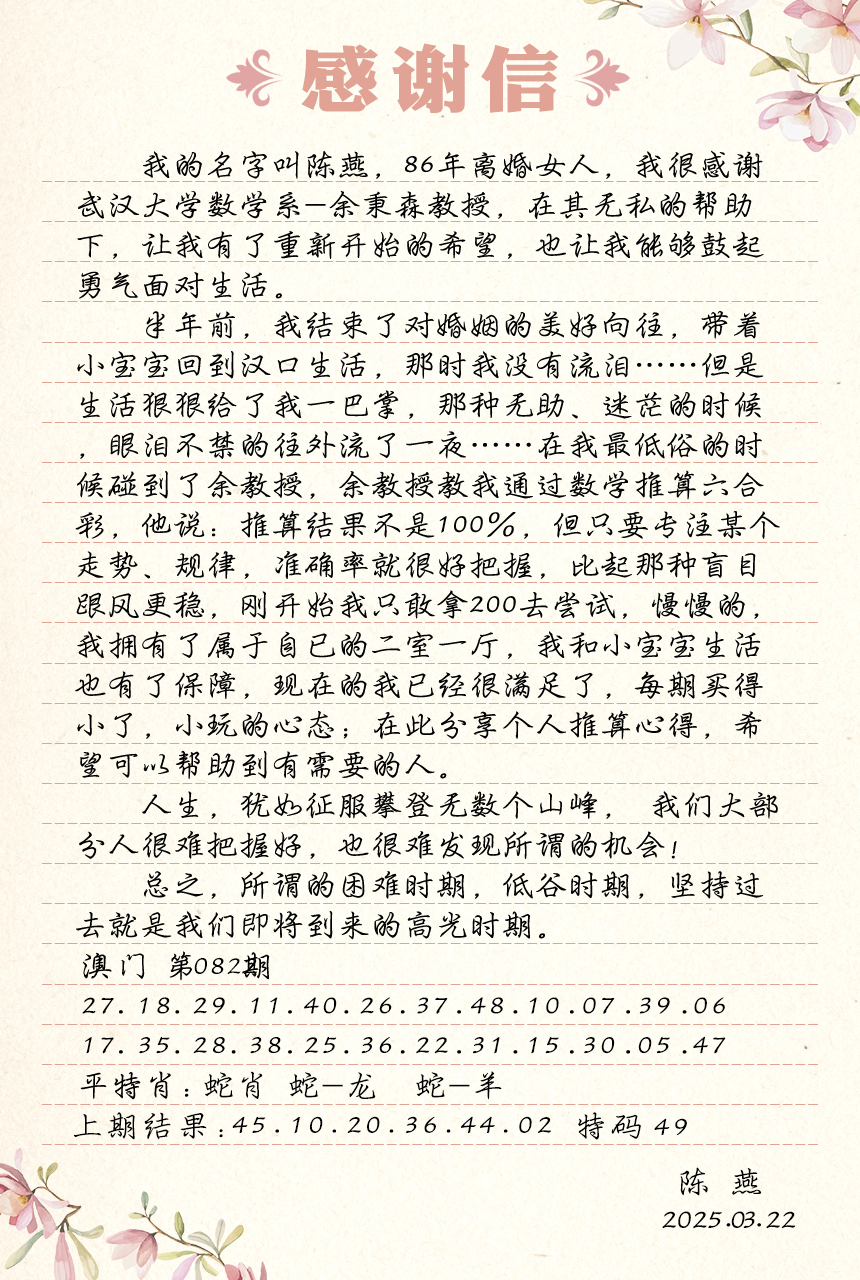 感谢信
我的名字叫陈燕，86年离婚女人，我很感谢
武汉大学数学系—余秉森教授，在其无私的帮助
下，让我有了重新开始的希望，也让我能够鼓起
勇气面对生活。
半年前，我结束了对婚姻的美好向往，带着
小宝宝回到汉口生活，那时我没有流泪……但是
生活狠狠给了我一巴掌，那种无助、迷茫的时候
，眼泪不禁的往外流了一夜……在我最低俗的时
候碰到了余教授，余教授教我通过数学推算六合
彩，他说：推算结果不是100%，但只要专注某个
走势、规律，准确率就很好把握，比起那种盲目
跟风更稳，刚开始我只敢拿200去尝试，慢慢的，
我拥有了属于自已的二室一厅，我和小宝宝生活
也有了保障，现在的我已经很满足了，每期买得
小了，小玩的心态；在此分享个人推算心得，希
望可以帮助到有需要的人。
人生，犹如征服攀登无数个山峰， 我们大部
分人很难把握好，也很难发现所谓的机会！
总之，所谓的困难时期，低谷时期，坚持过
去就是我们即将到来的高光时期。
澳门 第082期
27.18.29.11.40.26.37.48.10.07.39.06
17.35.28.38.25.36.22.31.15.30.05.47
平特肖：蛇肖 蛇—龙 蛇—羊
上期结果：45.10.20.36.44.02 特码 49
陈 燕
2025.03.22